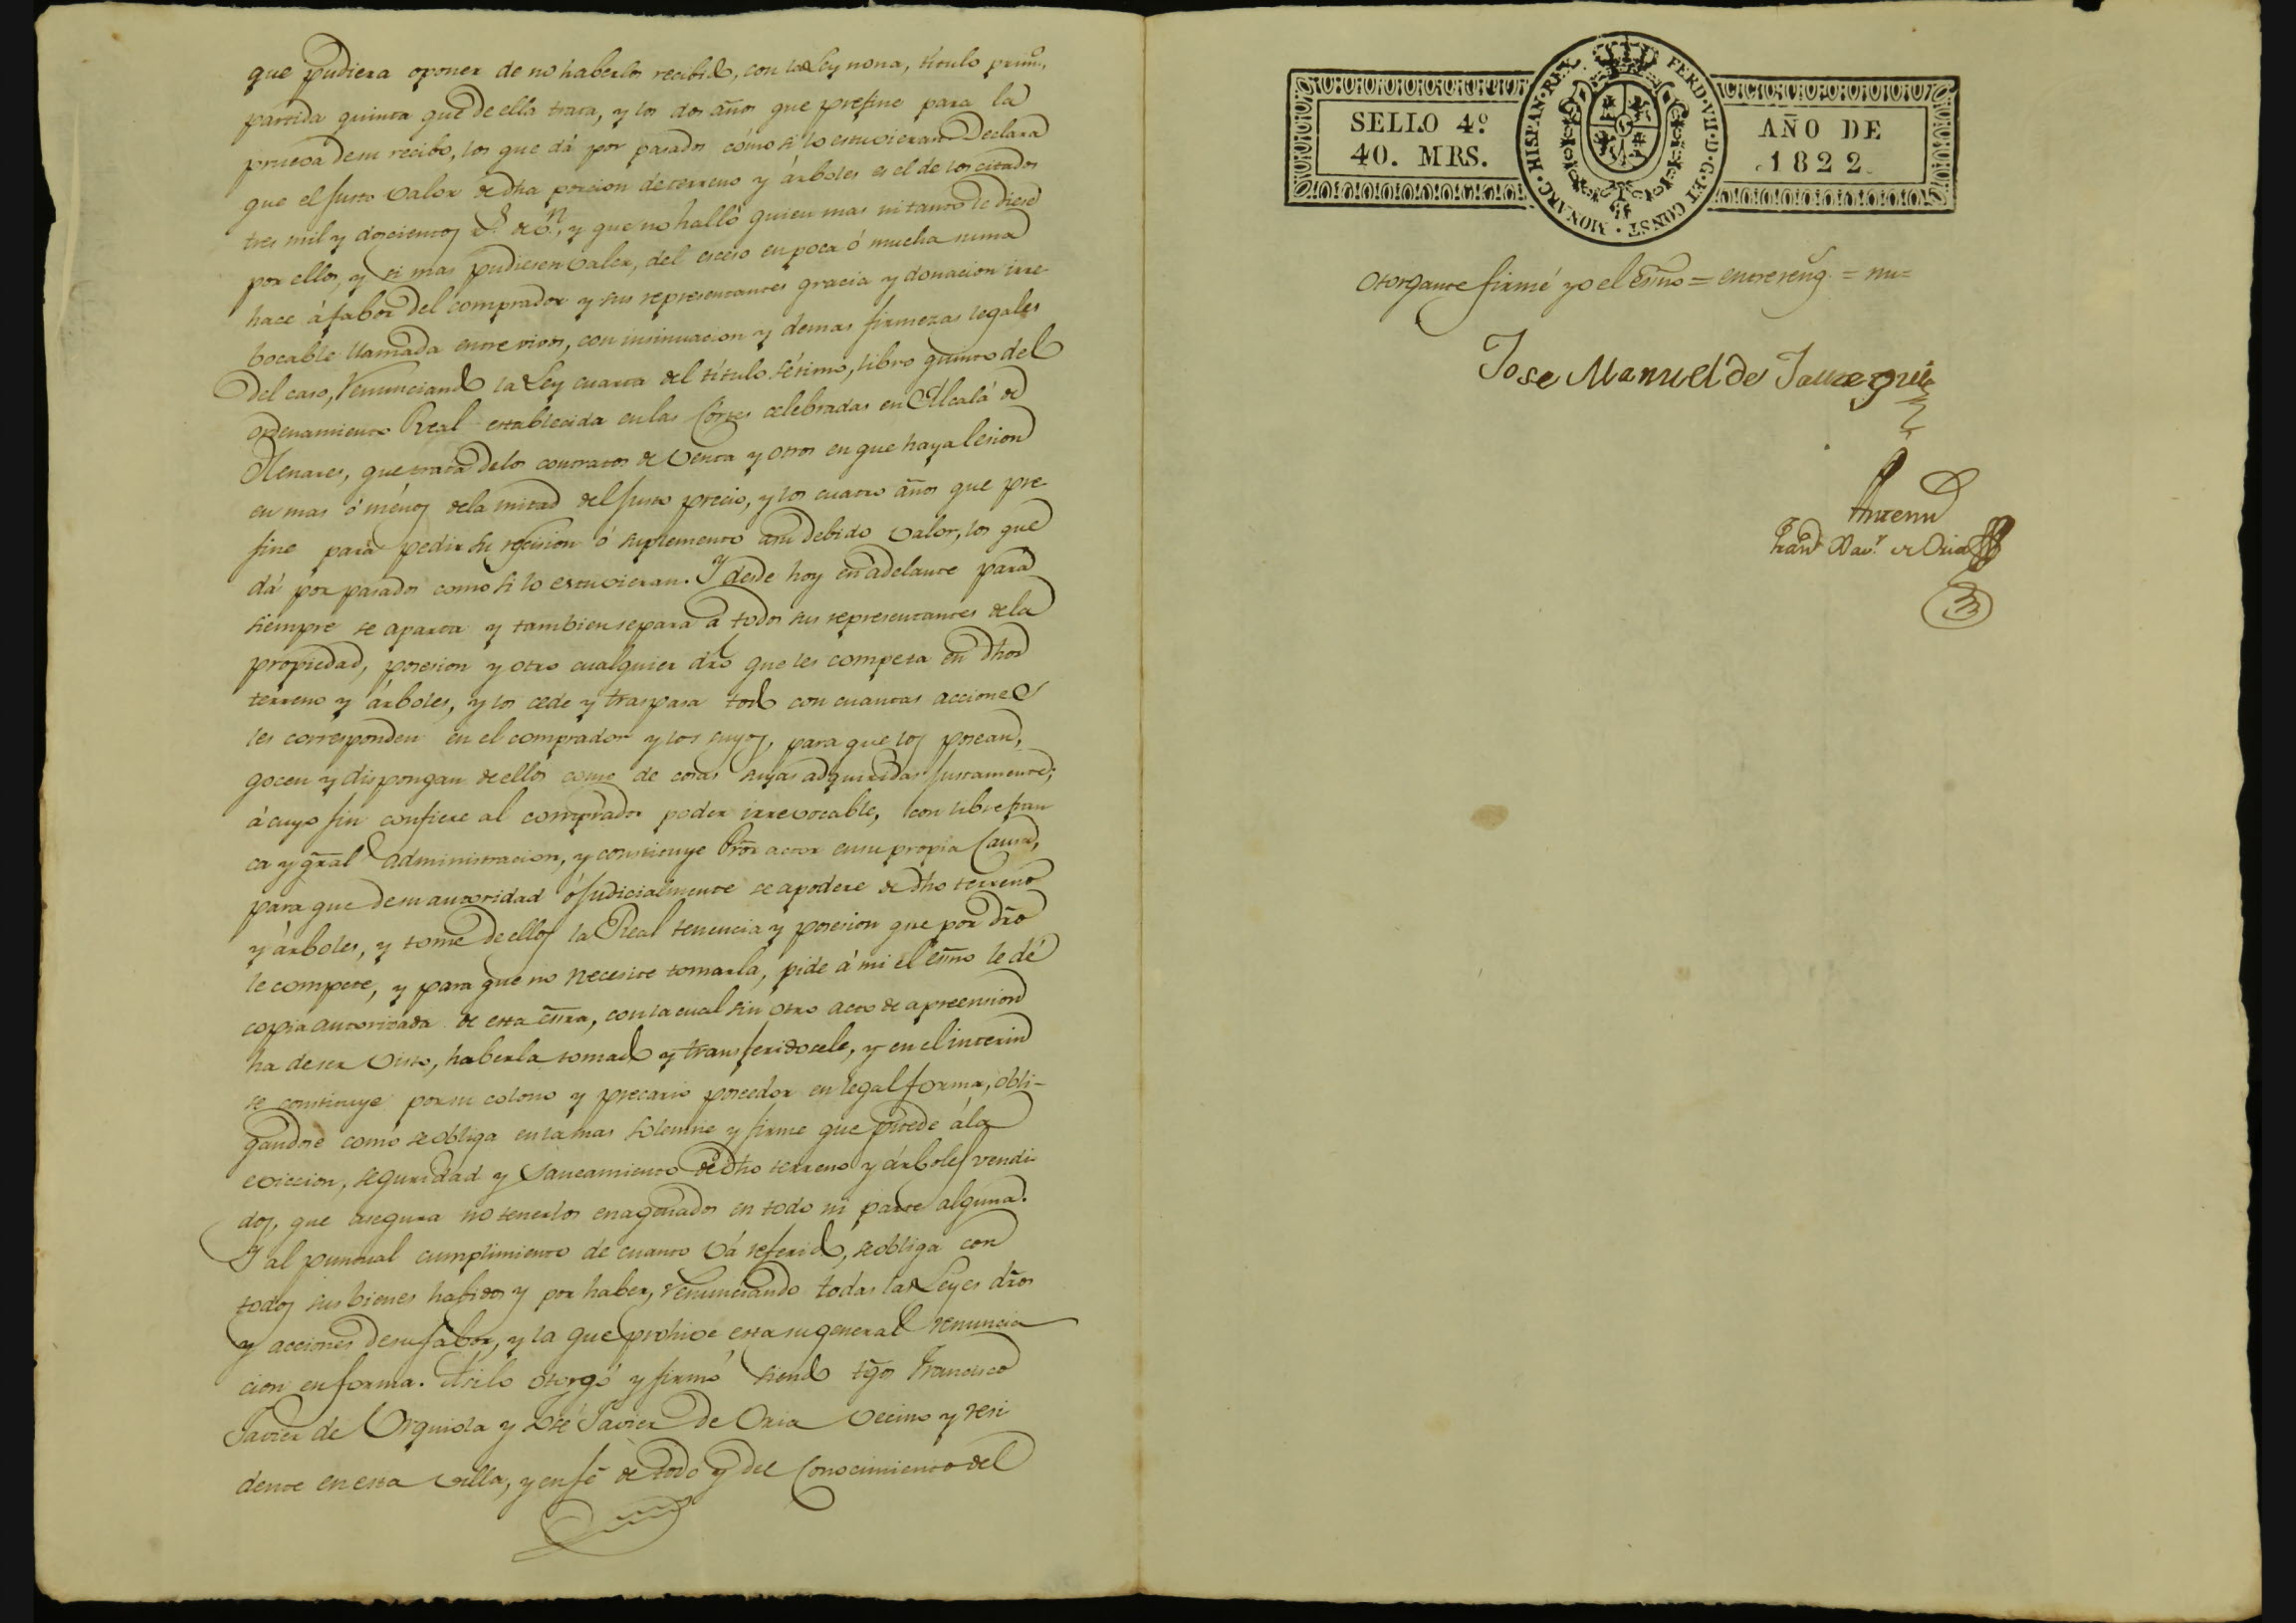 que pudiera oponer de no haberlos recibido, con la Ley nona, título prim.º,
partida quinta que de ella trata, y los dos años que prefine para la
prueva de su recibo, los que dá por pasados cómo si lo estuvieran. Declara
que el justo valor de dha porcion de terreno y árboles es el de los citados
tres mil y doscientos r.s de v.n, y que no halló quien mas ni tanto le diese
por ellos, y si mas pudiesen valer, del exceso en poca ó mucha suma
hace á fabor del comprador y sus representantes gracia y donacion irre-
bocable llamada entre vivos, con insinuacion y demas firmezas legales
del caso, renunciando la Ley cuarta del título sétimo, libro quinto del
ordenamiento Real establecida en las Córtes celebradas en Alcalá de
Henares, que trata de los contratos de venta y otros en que haya lesion
en mas ó ménos de la mitad del justo precio, y los cuatro años que pre-
fine para pedir su recision ó suplemento a su debido valor, los que
dá por pasados como si lo estuvieran. Y desde hoy en adelante para
siempre se aparta y tambien separa á todos sus representantes de la
propiedad, posesion y otro cualquier dro que les competa en dhos
terreno y árboles, y los cede y traspasa todo con cuantas acciones
les corresponden en el comprador y los suyos, para que los posean,
gocen y dispongan de ellos como de cosas suyas adquiridas justamente;
á cuyo fin confiere al comprador poder irrevocable, con libre fran
ca y gral administracion, y constituye Pror actor en su propia causa,
para que de su autoridad ó judicialmente se apodere de dho terreno
y árboles, y tome de ellos la Real tenencia y posesion que por dro
le compete, y para que no necesite tomarla, pide á mi el esno le dé
copia autorizada de esta esra, con la cual sin otro acto de apreension
ha de ser visto, haberla tomado y transferidosele, y en el interin
se constituye por su colono y precario poseedor en legal forma, obli-
gandose como se obliga en la mas solemne y firme que puede á la
eviccion, seguridad y saneamiento de dho terreno y árboles vendi-
dos, que asegura no tenerlos enagenados en todo ni parte alguna.
Y al puntual cumplimiento de cuanto vá referido, se obliga con
todos sus bienes habidos y por haber, renunciando todas las Leyes dros
y acciones de su fabor, y la que prohive esta su general renuncia
cion en forma. Asi lo otorgó y firmó siendo tgos Francisco
Javier de Urquiola y José Javier de Oria vecino y resi
dente en esta villa, y en fé de todo y del conocimiento del
SELLO 4º
40. MRS.
FERD·VII·D·G·ET CONST·MONARC·HISPAN·REX
AÑO DE
1822
otorgante firmé yo el esno = entrereng. = nu=
Jose Manuel de Jauregui
Antemi
Fran.co Xav.r de Oria